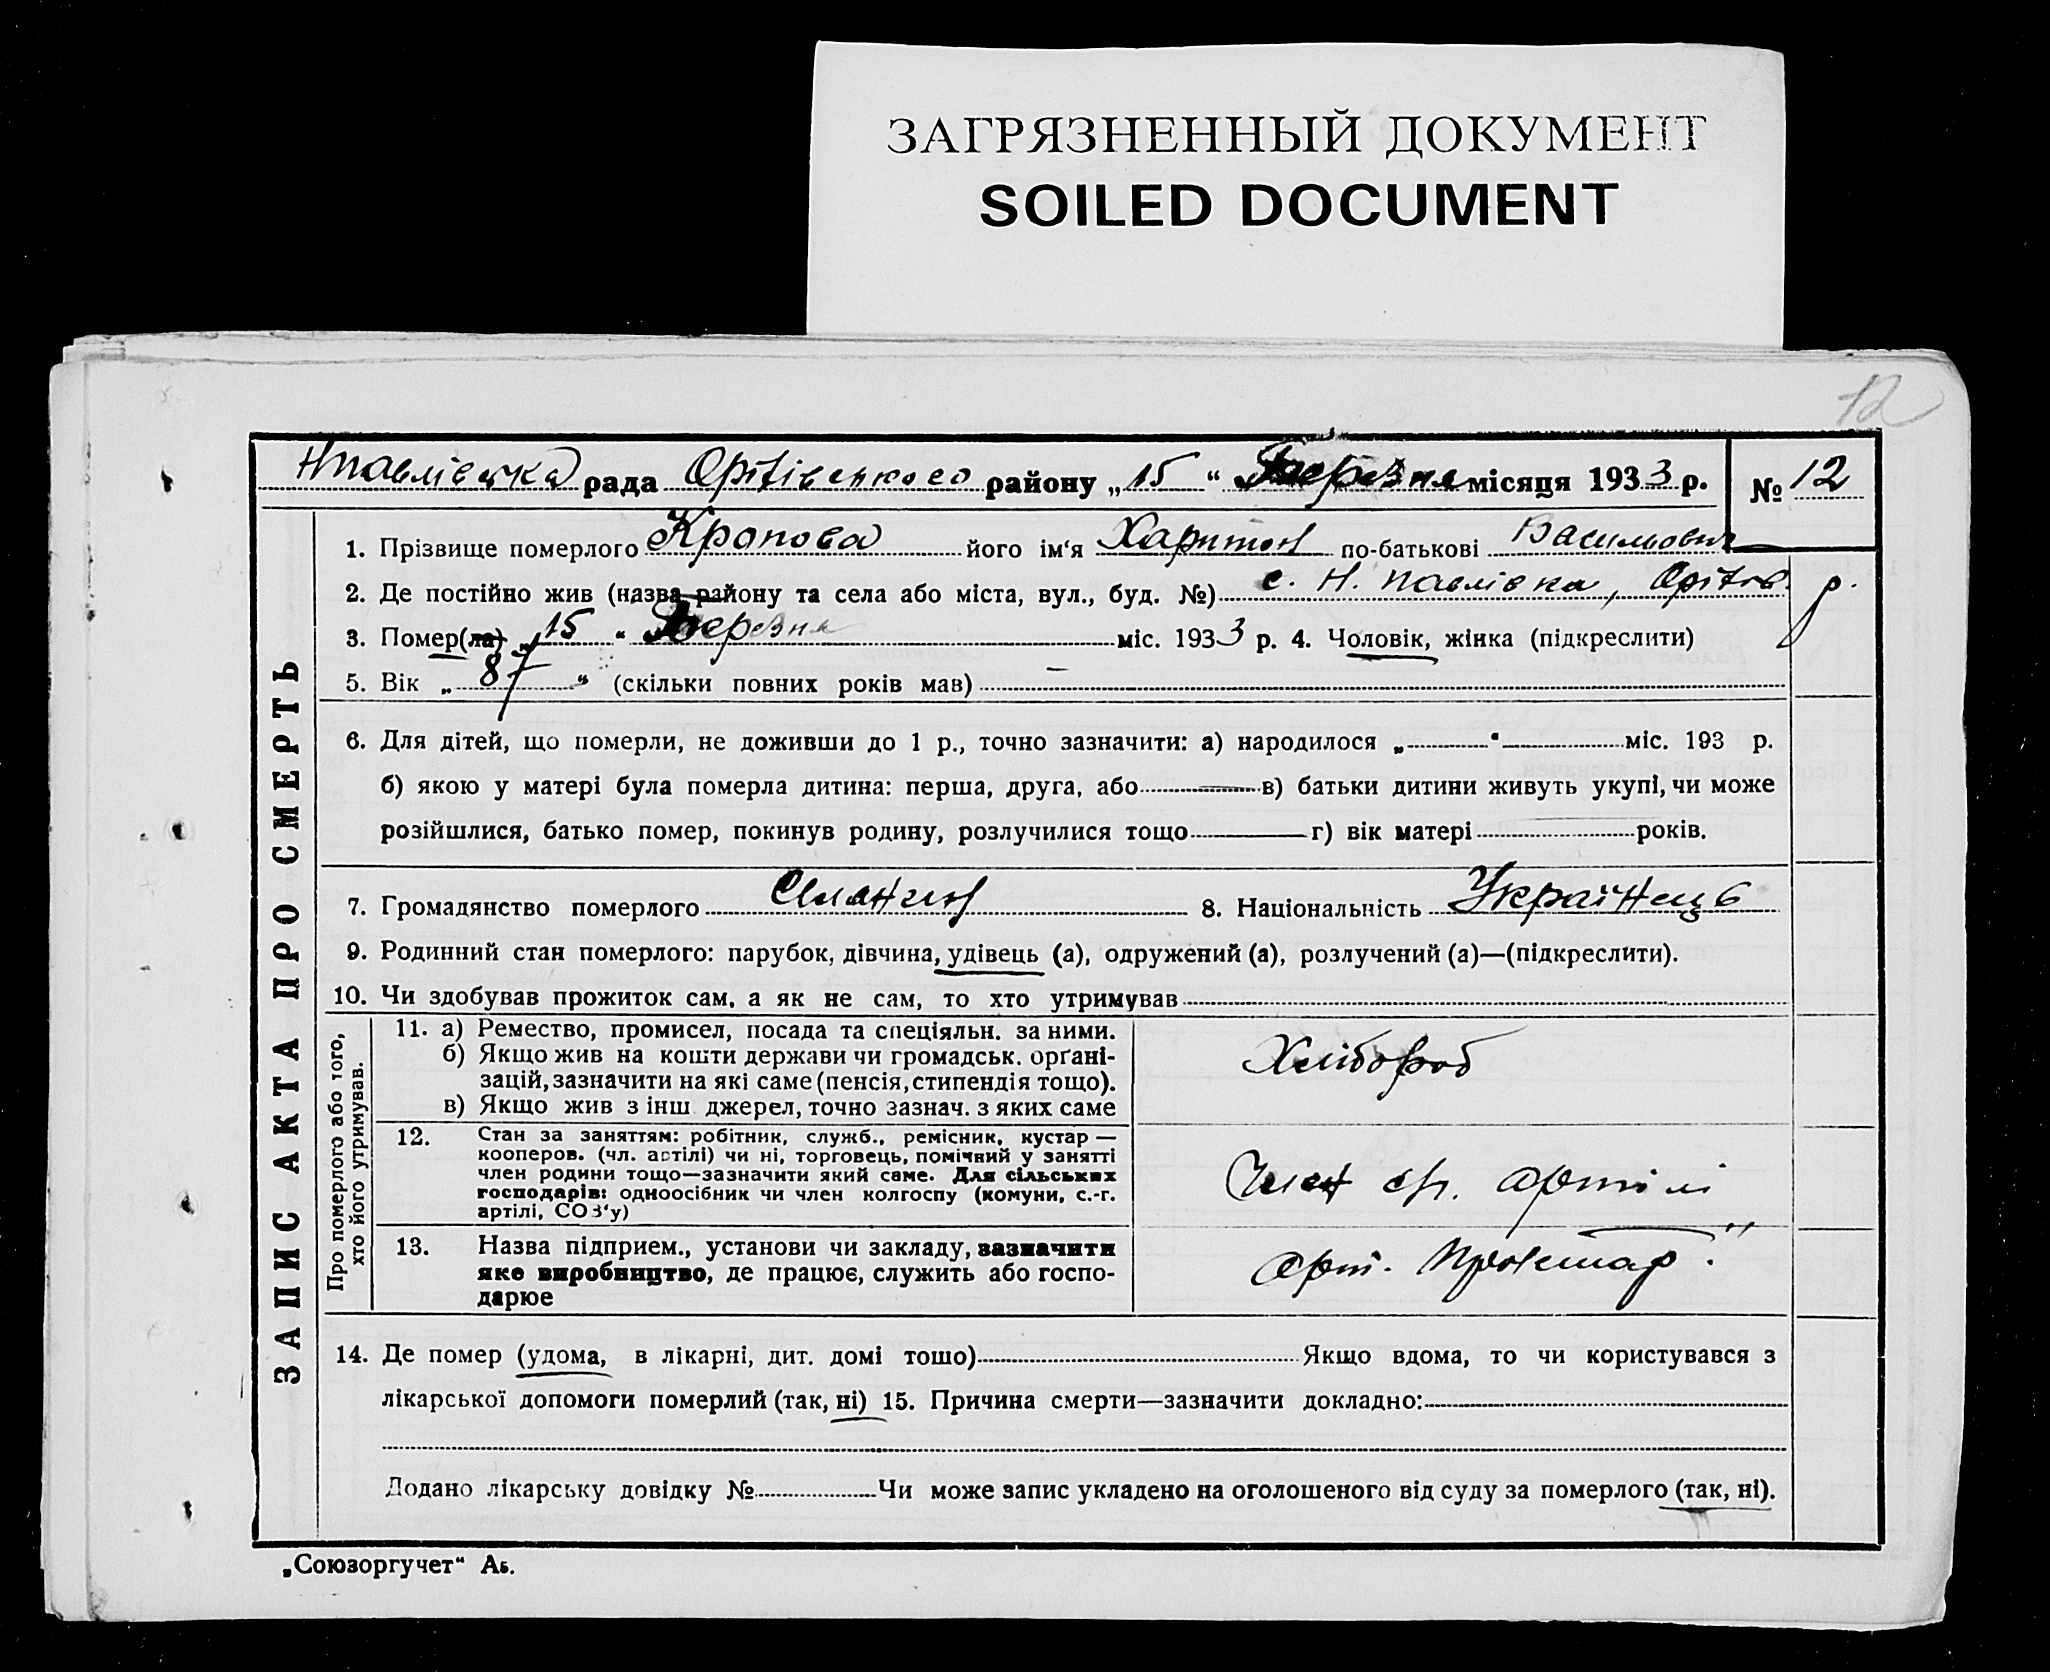 ЗАГРЯЗНЕННЫЙ ДОКУМЕНТ
SOILED DOCUMENT
12
Нпавлівська рада районy „15“ Березня місяця 1933 р. № 12
ЗАПИС АКТА ПРО СМЕРТЬ
1. Прізвище померлого Кропова його ім'я Харитон по-батькові Васильович
2. Де постійно жив (назва району та села або міста, вул., буд. №) с. Н. Павлівка, р.
3. Помер(ла) „15“ Березня міс. 1933 р. 4. Чоловік, жінка (підкреслити)
5. Вік „87“ (скільки повних років мав) —
6. Для дітей, що померли, не доживши до 1 р., точно зазначити: а) народилося „ “ міс. 193 р.
б) якою у матері була померла дитина: перша, друга, або — в) батьки дитини живуть укупі, чи може
розійшлися, батько помер, покинув родину, розлучилися тощо — г) вік матері — років.
7. Громадянство померлого Селянин 8. Національність Українець
9. Родинний стан померлого: парубок, дівчина, удівець (а), одружений (а), розлучений (а)—(підкреслити).
10. Чи здобував прожиток сам, а як не сам, то хто утримував
Про померлого або того,
хто його утримував.
11. а) Ремество, промисел, посада та спеціяльн. за ними.
б) Якщо жив на кошти держави чи громадськ. орґані-
зацій, зазначити на які саме (пенсія, стипендія тощо).
в) Якщо жив з інш джерел, точно зазнач. з яких саме
Хлібороб
12. Стан за заняттям: робітник, служб., ремісник, кустар —
кооперов. (чл. артілі) чи ні, торговець, помічний у занятті
член родини тощо—зазначити який саме. Для сільських
господарів: одноосібник чи член колгоспу (комуни, с.-г.
артілі, СОЗ'у)
Член с/г. артілі
13. Назва підприєм., установи чи закладу, зазначити
яке виробництво, де працює, служить або госпо-
дарює
Арт. Пролетар."
14. Де помер (удома, в лікарні, дит. домі тошо) Якщо вдома, то чи користувався з
лікарської допомоги померлий (так, ні) 15. Причина смерти—зазначити докладно:
Додано лікарську довідку № Чи може запис укладено на оголошеного від суду за померлого (так, ні).
„Союзоргучет“ Аб.